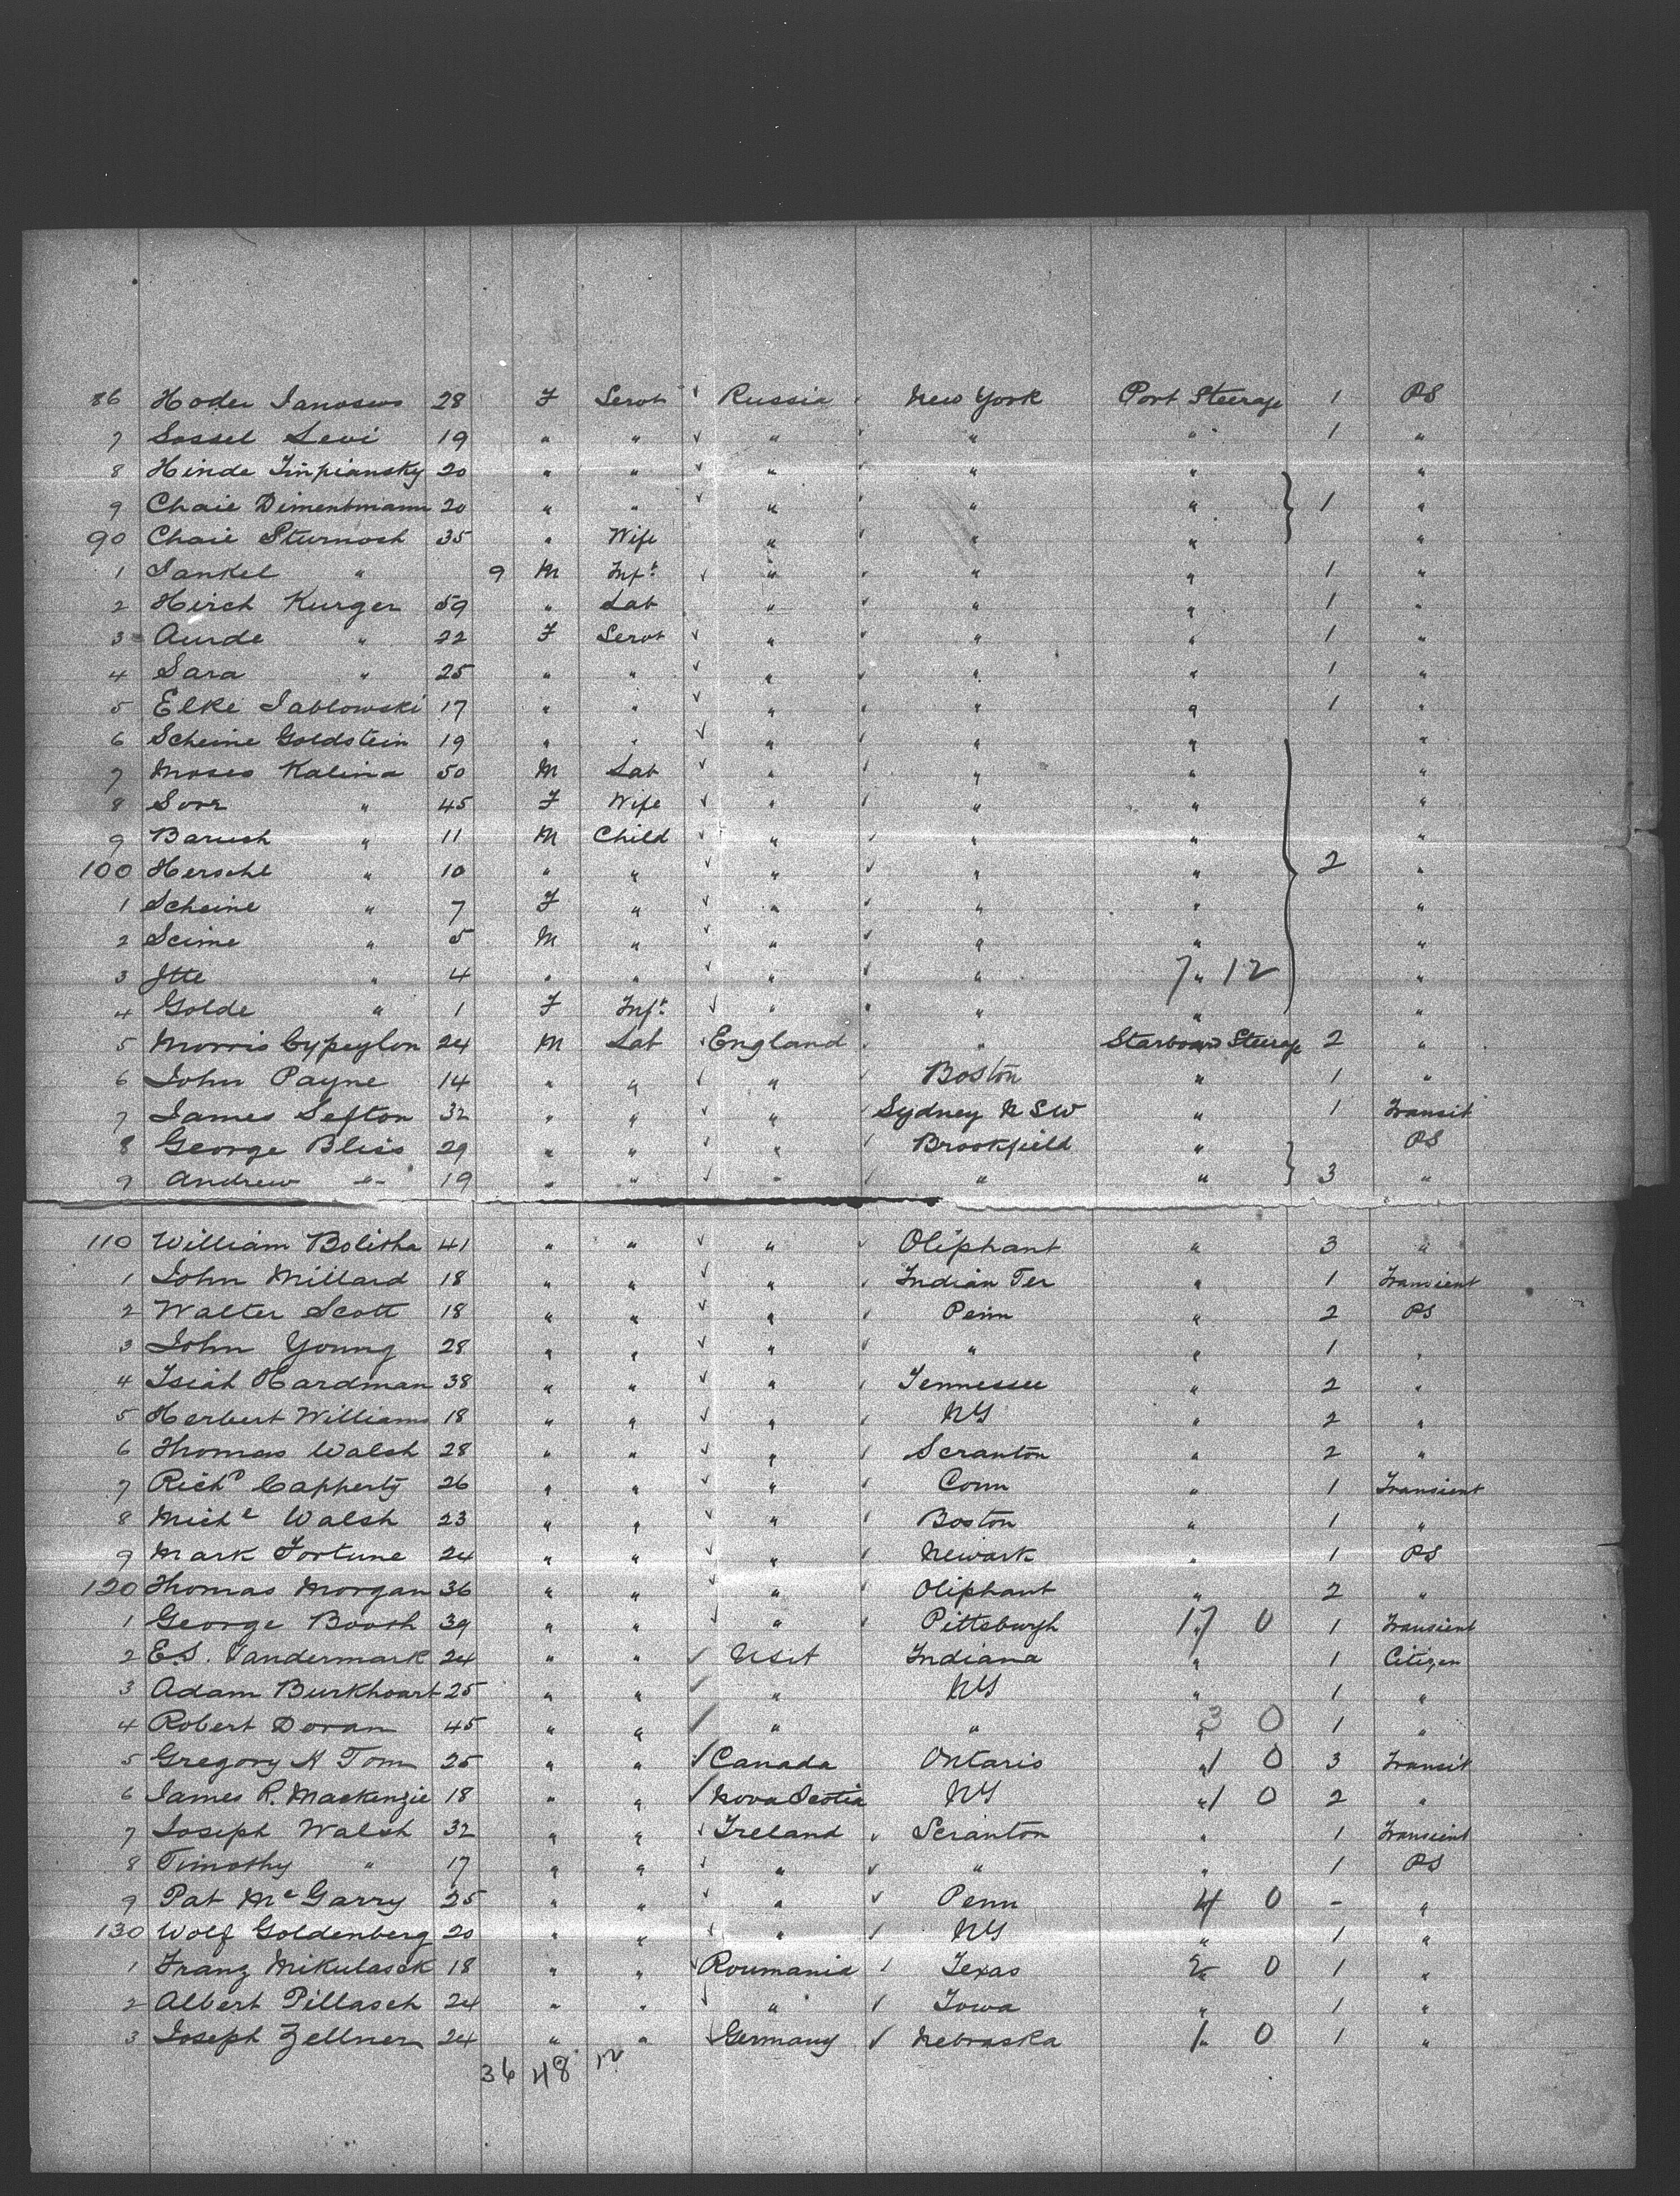 86 Hoder Janosews 28 F Servt Russia New York Port Steerage 1 PS
7 Sossel Levi 19 " " " " " 1 "
8 Hinde Impiansky 20 " " " " " "
9 Chaie Dimentmann 20 " " " " " 1 "
90 Chaie Sturnoch 35 " Wife " " " "
1 Jankel " 9 M Inft " " " 1 "
2 Hirch Kurger 59 " Lab " " " 1 "
3 Aurde " 22 F Servt " " " 1 "
4 Sara " 25 " " " " " 1 "
5 Elke Jablowski 17 " " " " " 1 "
6 Scheine Goldstein 19 " " " " " "
7 Moses Kalina 50 M Lab " " " "
8 Sore " 45 F Wife " " " "
9 Baruch " 11 M Child " " " "
100 Herschl " 10 " " " " " 2 "
1 Scheine " 7 F " " " " "
2 Seime " 5 M " " " " "
3 Itte " 4 " " " " " 7 12 "
4 Golde " 1 F Inft " " " "
5 Morris Cypeylon 24 M Lab England " Starboard Steerage 2 "
6 John Payne 14 " " " Boston " 1 "
7 James Sefton 32 " " " Sydney NSW " 1 Transit
8 George Bliss 29 " " " Brookfield " PS
9 Andrew -"- 19 " " " " " 3 "
110 William Bolitha 41 " " " Oliphant " 3 "
1 John Millard 18 " " " Indian Ter " 1 Transient
2 Walter Scott 18 " " " Penn " 2 PS
3 John Young 28 " " " " " 1 "
4 Isiah Hardman 38 " " " Tennessee " 2 "
5 Herbert Williams 18 " " " NY " 2 "
6 Thomas Walsh 28 " " " Scranton " 2 "
7 Richd Capperty 26 " " " Conn " 1 Transient
8 Michl Walsh 23 " " " Boston " 1 "
9 Mark Fortune 24 " " " Newark " 1 PS
120 Thomas Morgan 36 " " " Oliphant " 2 "
1 George Booth 39 " " " Pittsburgh " 17 0 1 Transient
2 E.S. Vandermark 24 " " USA Indiana " 1 Citizen
3 Adam Burkhoart 25 " " " NY " 1 "
4 Robert Doran 45 " " " " " 3 0 1 "
5 Gregory A Tom 25 " " Canada Ontario " 1 0 3 Transit
6 James R. Mackenzie 18 " " Nova Scotia NY " 1 0 2 "
7 Joseph Walsh 32 " " Ireland Scranton " 1 Transient
8 Timothy " 17 " " " " " 1 PS
9 Pat McGarry 25 " " " Penn " 4 0 - "
130 Wolf Goldenberg 20 " " " NY " 1 "
1 Franz Mikulasck 18 " " Roumania Texas " 2 0 1 "
2 Albert Pillasch 24 " " " Iowa " 1 "
3 Joseph Zellner 24 " " Germany Nebraska " 1 0 1 "
36 48 12